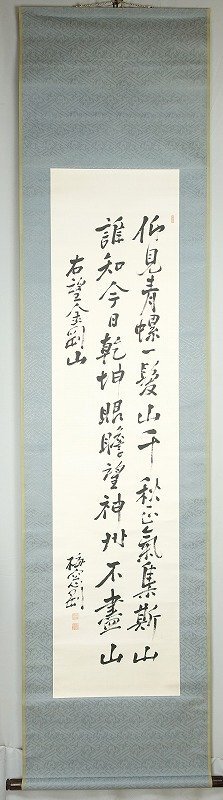 仰見青螺一髮山千秋正氣集斯山
誰知今日乾坤眼瞻望神州不盡山
右望金剛山
梅窓